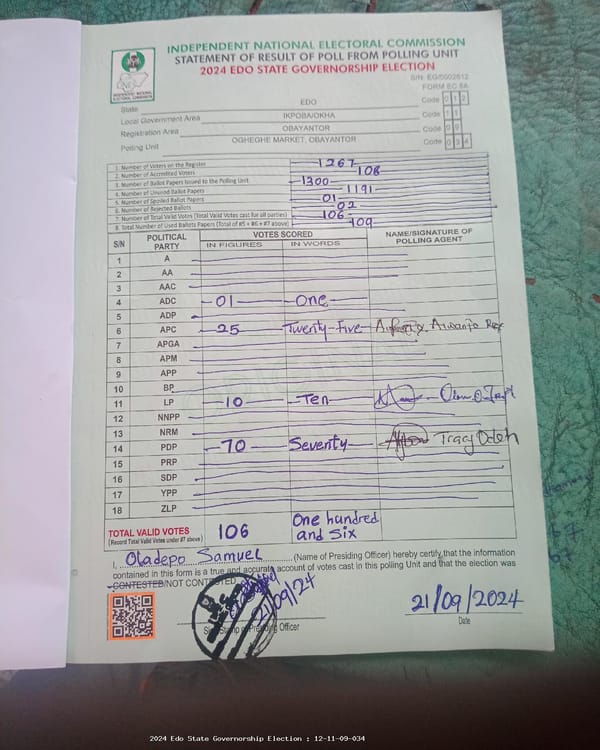 INDEPENDENT NATIONAL ELECTORAL COMMISSION
STATEMENT OF RESULT OF POLL FROM POLLING UNIT
2024 EDO STATE GOVERNORSHIP ELECTION
S/N: EG/0002612
FORM EC 8A
State EDO Code 012
Local Government Area IKPOBA/OKHA Code 11
Registration Area OBAYANTOR Code 09
Polling Unit OGHEGHE MARKET, OBAYANTOR Code 034
1. Number of Voters on the Register 1267
2. Number of Accredited Voters 108
3. Number of Ballot Papers Issued to the Polling Unit 1300
4. Number of Unused Ballot Papers 1191
5. Number of Spoiled Ballot Papers 01
6. Number of Rejected Ballots 02
7. Number of Total Valid Votes (Total Valid Votes cast for all parties) 106
8. Total Number of Used Ballots Papers (Total of #5 + #6 + #7 above) 109
S/N POLITICAL PARTY VOTES SCORED NAME/SIGNATURE OF POLLING AGENT
IN FIGURES IN WORDS
1 A
2 AA
3 AAC
4 ADC 01 One
5 ADP
6 APC 25 Twenty-Five
7 APGA
8 APM
9 APP
10 BP
11 LP 10 Ten
12 NNPP
13 NRM
14 PDP 70 Seventy Tracy Odeh
15 PRP
16 SDP
17 YPP
18 ZLP
TOTAL VALID VOTES 106 One hundred and Six
(Record Total Valid Votes under #7 above)
I, Oladepo Samuel (Name of Presiding Officer) hereby certify that the information
contained in this form is a true and accurate account of votes cast in this polling Unit and that the election was
CONTESTED/NOT CONTESTED
21/09/24
21/09/2024
Sign/Stamp of Presiding Officer Date
2024 Edo State Governorship Election : 12-11-09-034